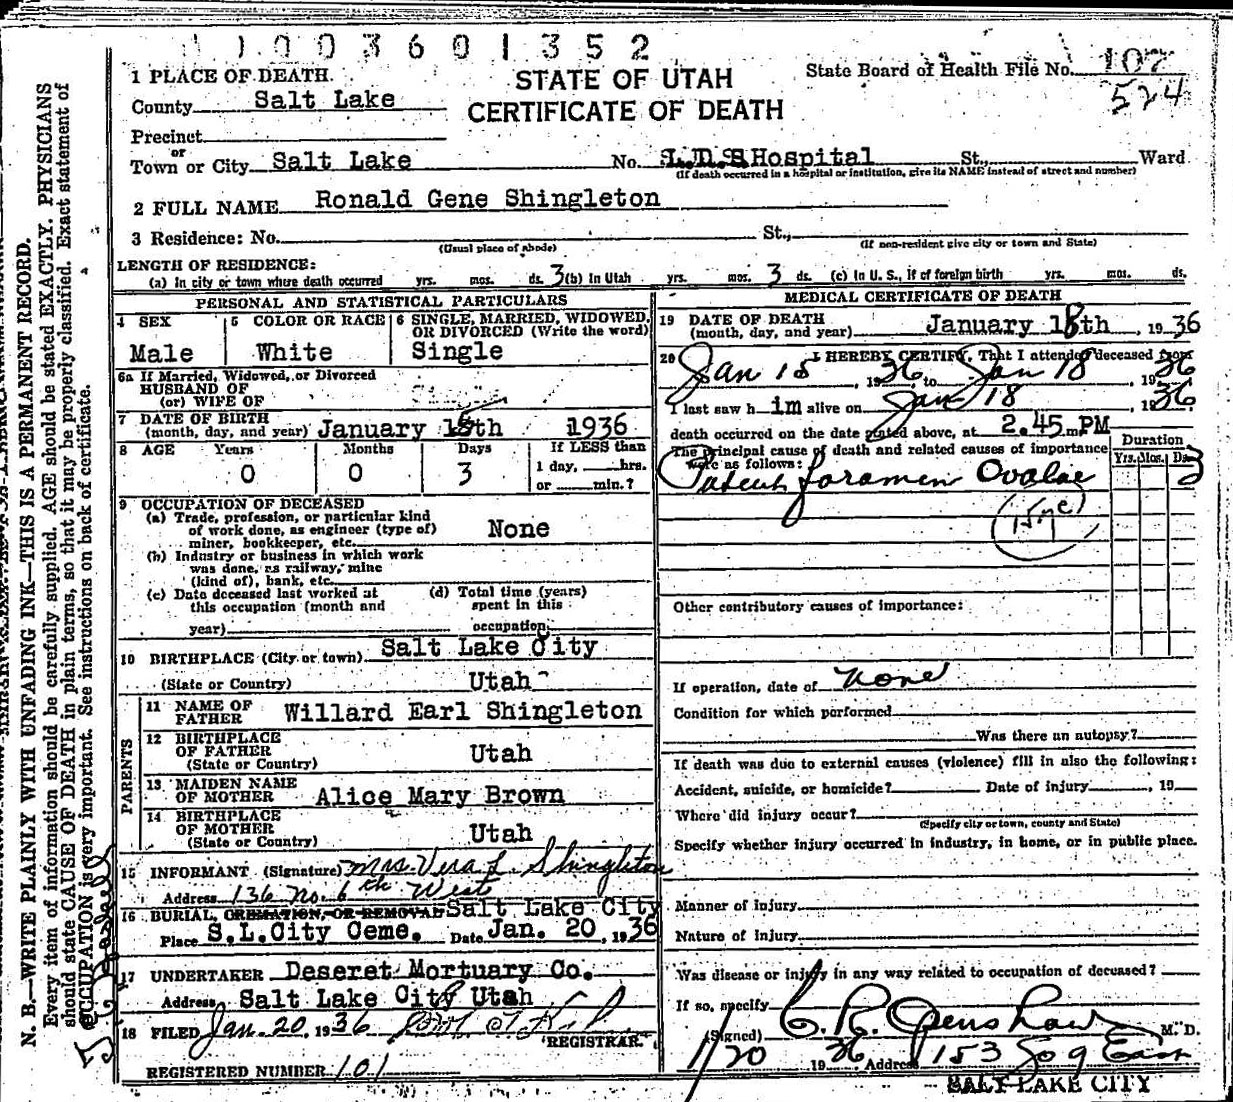 1003601352
1 PLACE OF DEATH
STATE OF UTAH
CERTIFICATE OF DEATH
State Board of Health File No. 107
524
County Salt Lake
Precinct
or
Town or City Salt Lake No. L.D.S Hospital St., Ward
(If death occurred in a hospital or institution, give its NAME instead of street and number)
2 FULL NAME Ronald Gene Shingleton
3 Residence: No. St.,
(Usual place of abode) (If non-resident give city or town and State)
LENGTH OF RESIDENCE:
(a) In city or town where death occurred yrs. mos. ds. 3 (b) In Utah yrs. mos. 3 ds. (c) In U. S., if of foreign birth yrs. mos. ds.
PERSONAL AND STATISTICAL PARTICULARS
4 SEX 5 COLOR OR RACE 6 SINGLE, MARRIED, WIDOWED, OR DIVORCED (Write the word)
Male White Single
6a If Married, Widowed, or Divorced
HUSBAND OF
(or) WIFE OF
7 DATE OF BIRTH
(month, day, and year) January 15th 1936
8 AGE Years Months Days If LESS than
0 0 3 1 day, hrs.
or min.?
9 OCCUPATION OF DECEASED
(a) Trade, profession, or particular kind
of work done, as engineer (type of)
miner, bookkeeper, etc. None
(b) Industry or business in which work
was done, as railway, mine
(kind of), bank, etc.
(c) Date deceased last worked at
this occupation (month and
year)
(d) Total time (years)
spent in this
occupation
10 BIRTHPLACE (City or town) Salt Lake City
(State or Country) Utah
PARENTS
11 NAME OF
FATHER Willard Earl Shingleton
12 BIRTHPLACE
OF FATHER
(State or Country) Utah
13 MAIDEN NAME
OF MOTHER Alice Mary Brown
14 BIRTHPLACE
OF MOTHER
(State or Country) Utah
15 INFORMANT (Signature) Mrs. Vera L. Shingleton
Address 136 No. 6th West
16 BURIAL, CREMATION, OR REMOVAL Salt Lake City
Place S.L.City Ceme. Date Jan. 20, 1936
17 UNDERTAKER Deseret Mortuary Co.
Address Salt Lake City Utah
18 FILED Jan. 20, 1936
REGISTRAR.
REGISTERED NUMBER 101
MEDICAL CERTIFICATE OF DEATH
19 DATE OF DEATH
(month, day, and year) January 18th, 1936
20 I HEREBY CERTIFY, That I attended deceased from
Jan 15, 1936, to Jan 18, 1936
I last saw him alive on Jan 18, 1936
death occurred on the date stated above, at 2.45 m. PM
The principal cause of death and related causes of importance
were as follows:
Duration
Yrs. Mos. Ds.
Patent foramen Ovalae 3
(157c)
Other contributory causes of importance:
If operation, date of none
Condition for which performed
Was there an autopsy?
If death was due to external causes (violence) fill in also the following:
Accident, suicide, or homicide? Date of injury , 19
Where did injury occur?
(Specify city or town, county and State)
Specify whether injury occurred in industry, in home, or in public place.
Manner of Injury
Nature of Injury
Was disease or injury in any way related to occupation of deceased?
If so, specify
(Signed) C. R. Openshaw M. D.
1/20 1936 Address 153 So 9 East
SALT LAKE CITY
N. B.—WRITE PLAINLY WITH UNFADING INK—THIS IS A PERMANENT RECORD.
Every item of information should be carefully supplied. AGE should be stated EXACTLY. PHYSICIANS
should state CAUSE OF DEATH in plain terms, so that it may be properly classified. Exact statement of
OCCUPATION is very important. See instructions on back of certificate.